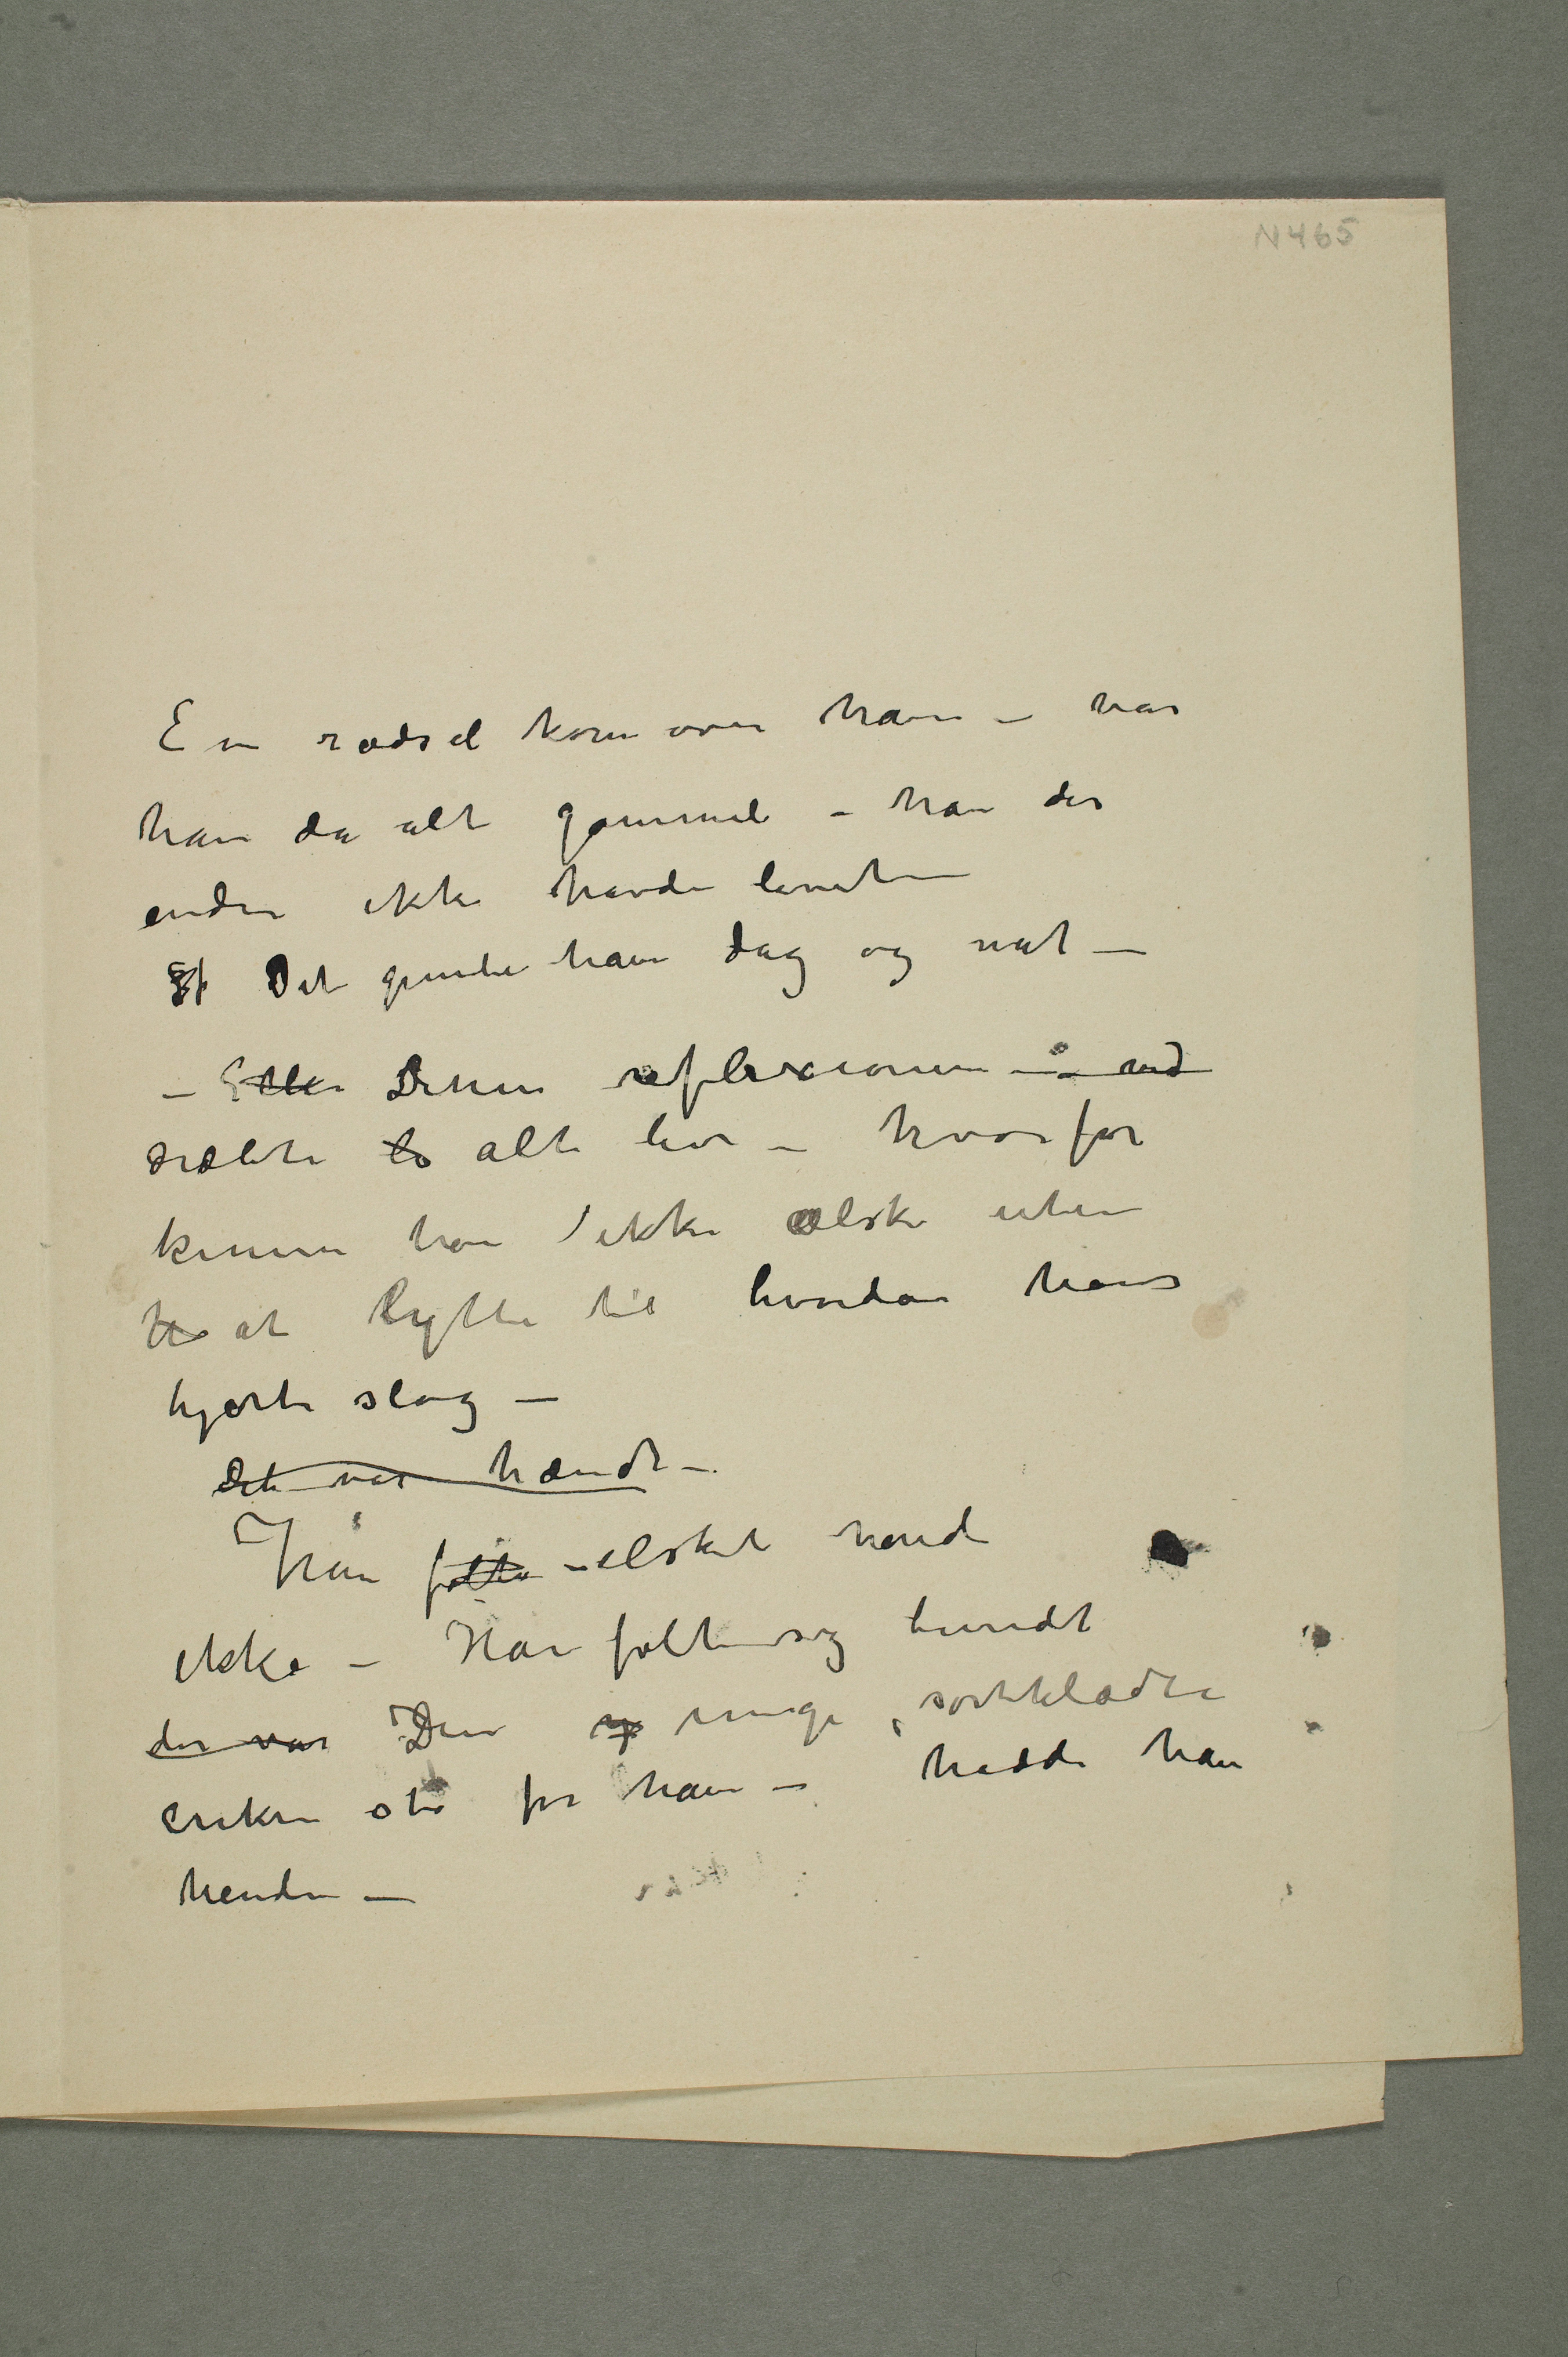 N465
En rædsel kom over ham – var
han da alt gammel – han der
endnu ikke havde levet –
Det pinte ham dag og nat –
– Eller Denne reflexionen – ved
dræbte alt liv – hvorfor
kunne han ikke elske uten
at lytte til hvordan hans
hjerte slog –
Det var hændt –
Han følte – elsket havde
ikke – Han følte sig bundet
der var Den unge, sortklædte
enken sto for ham – hadde han
hende –